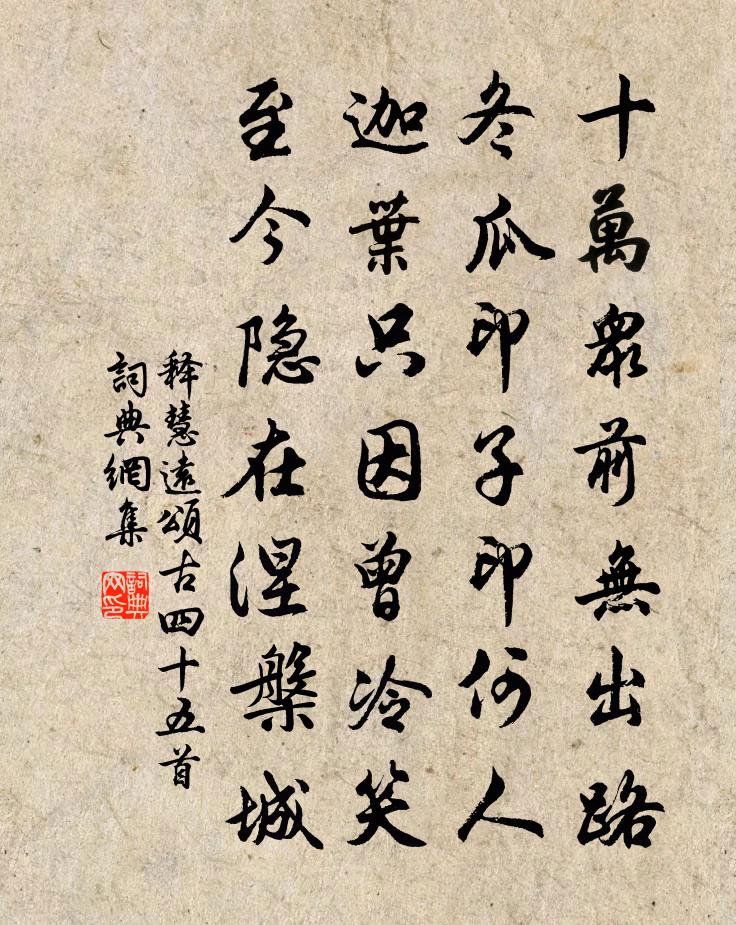 十萬眾前無出路
冬瓜印子印何人
迦葉只因曾冷笑
至今隐在涅槃城
释慧遠頌古四十五首
詞典網集
詞典網印